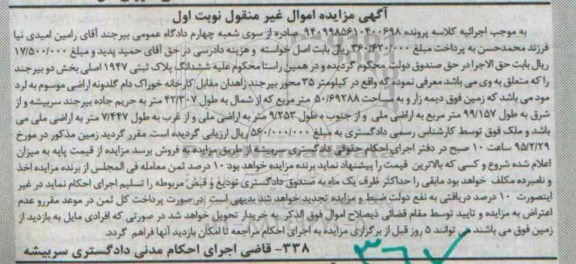 آگهی مزایده اموال غیر منقول نوبت اول
به موجب اجرائیه کلاسه پرونده ۹۴۰۹۹۸۵۶۱۰۴۰۰۶۹۸ صادره از سوی شعبه چهارم دادگاه عمومی بیرجند آقای رامین امیدی نیا
فرزند محمدحسن به پرداخت مبلغ ۳۶۰/۶۲۰/۰۰۰ ریال بابت اصل خواسته و هزینه دادرسی در حق آقای حمید پدید و مبلغ ۱۷/۵۰۰/۰۰۰
ریال بابت حق الاجرا در حق صندوق دولت محکوم گردیده و در همین راستا محکوم علیه ششدانگ پلاک ثبتی ۱۹۴۷ اصلی بخش دو بیرجند
را که متعلق به وی می باشد معرفی نموده که واقع در کیلومتر ۳۵ محور بیرجند زاهدان مقابل کارخانه خوراک دام گلدونه اراضی موسوم به لرد
مود می باشد که زمین فوق دیمه زار و به مساحت ۵۰/۶۹۲۸۸ متر مربع که از شمال به طول ۴۲/۳۰۷ متر به حریم جاده بیرجند سربیشه و از
شرق به طول ۹۹/۱۵۷ متر مربع به اراضی ملی و از جنوب به طول ۹/۲۵۳ متر به اراضی ملی و از غرب به طول ۷/۴۴۷ متر به اراضی ملی می
باشد و ملک فوق توسط کارشناس رسمی دادگستری به مبلغ ۵۶۰/۰۰۰/۰۰۰ ریال ارزیابی گردیده است. مقرر گردید زمین مذکور در مورخ
۹۵/۲/۲۹ ساعت ۱۰ صبح در دفتر اجرای احکام حقوقی دادگستری سربیشه از طریق مزایده به فروش برسد مزایده از قیمت پایه به میزان
اعلام شده شروع و کسی که بالاترین قیمت را پیشنهاد نماید برنده مزایده خواهد بود ۱۰ درصد ثمن معامله فی المجلس از برنده مزایده اخذ
و نامبرده مکلف خواهد بود مابقی را حداکثر ظرف یک ماه به صندوق دادگستری تودیع و قبض مربوطه را تسلیم اجرای احکام نماید در غیر
اینصورت ۱۰ درصد دریافتی به نفع دولت ضبط و مزایده تجدید خواهد شد بدیهی است در صورت پرداخت کل ثمن در موعد مقرر و عدم
اعتراض به مزایده و تایید توسط مقام قضائی ذیصلاح اموال فوق الذکر به خریدار تحویل خواهد شد در صورتی که افرادی مایل به بازدید از
زمین فوق می باشند می توانند ۵ روز قبل از برگزاری مزایده به اجرای احکام مراجعه تا امکان بازدید آنها فراهم گردد.
۳۳۸- قاضی اجرای احکام مدنی دادگستری سربیشه
۳۶۷